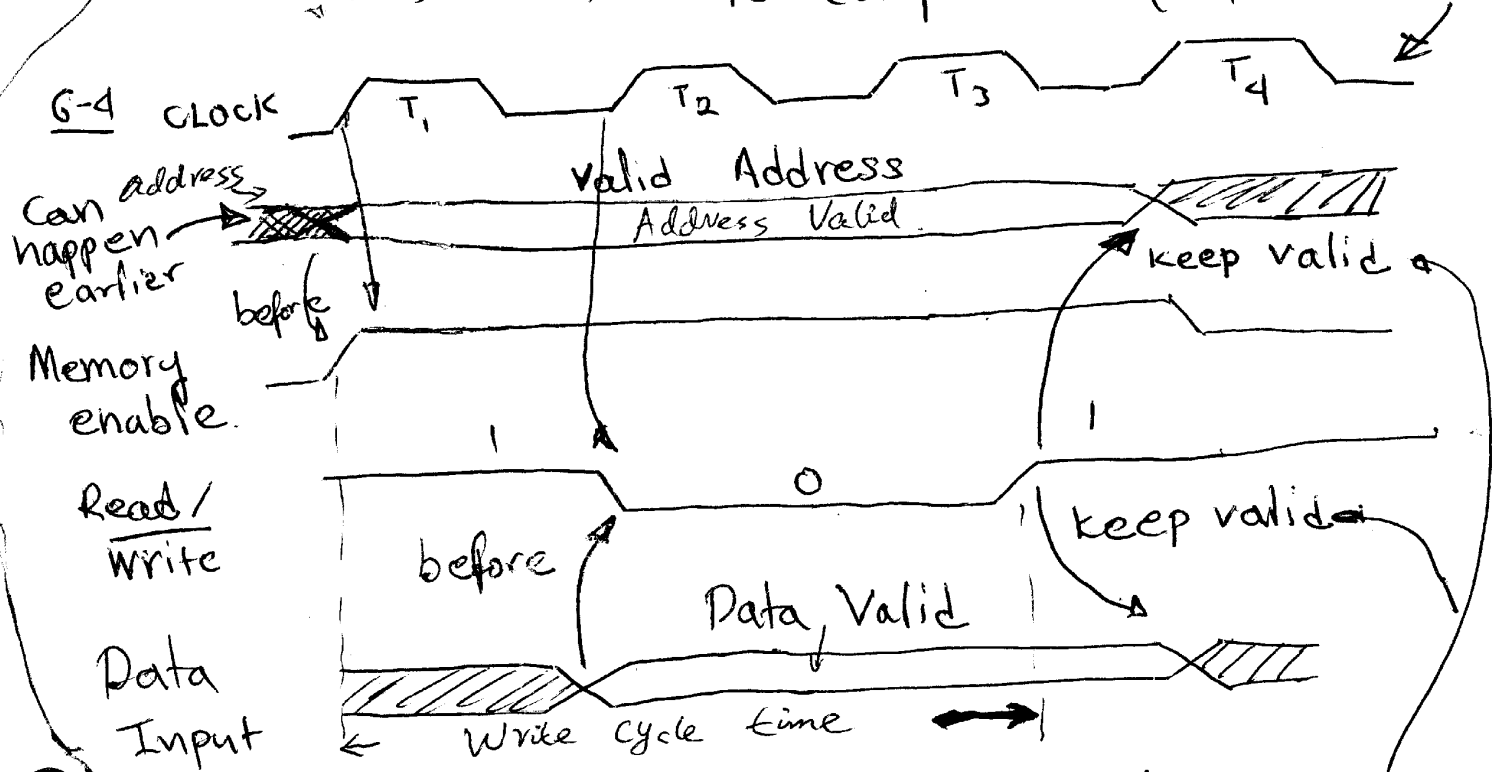 6-4 CLOCK T1 T2 T3 T4
address
Valid Address
Can
happen
earlier
Address Valid
keep valid
before
Memory
enable.
1 0 1
Read/
Write
before
keep valid
Data Valid
Data
Input
Write cycle time